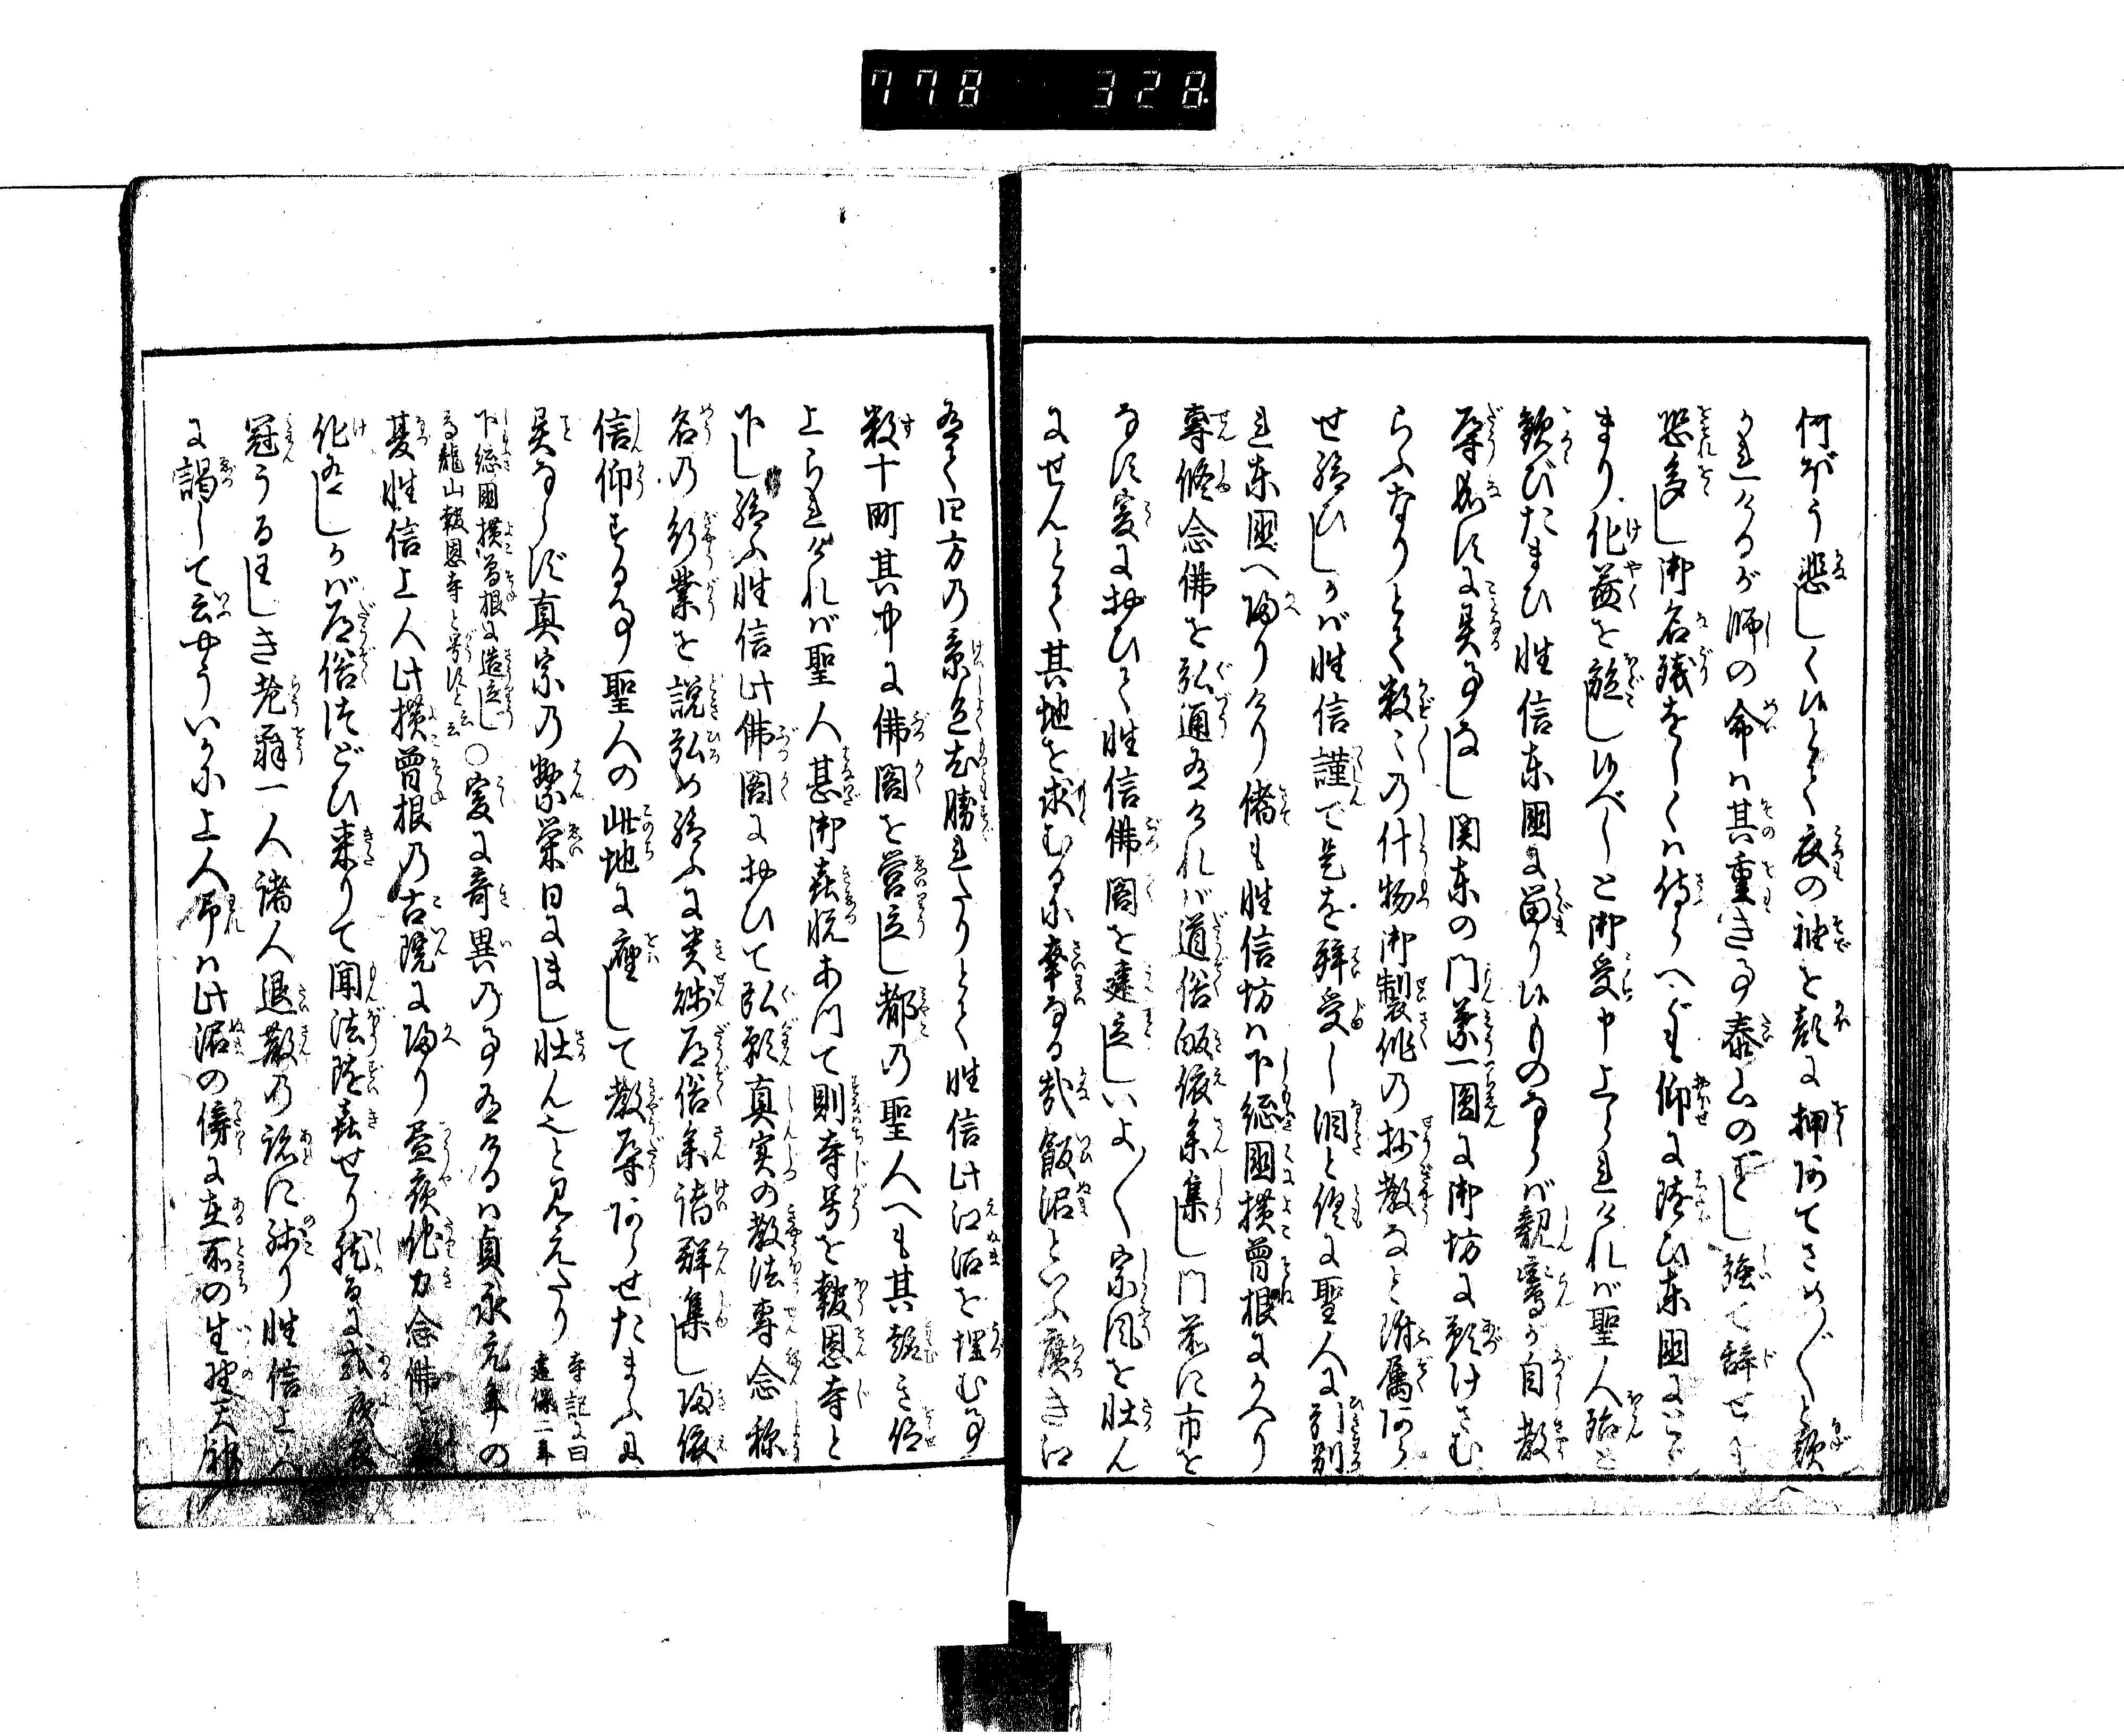 778 328
何がう悲しく候とて衣の袖を顔に押あてさめ〴〵と歎
かれけるが師の命は其重き事泰山の如し強て辞せも
恐多し御名残をしくは侍らへども仰に随ひ東国にとゞ
まり化益を施し候べしと御受申上られければ聖人殆と
歓びたまひ性信東国に留り候ものならば親鸞が自教
導するに異事なし関東の門葉一円に御坊に預けさむ
らふなりとて数〻の什物御製作の抄教など附属あら
せ給ひしかば性信謹で是を拝受し泪と倶に聖人に引別
れ東国へ帰りけり偖も性信坊は下総国横曽根にかへり
専修念佛を弘通有ければ道俗皈依参集し門前に市を
なす爰におひて性信佛閣を建立しいよ〳〵宗風を壮ん
にせんとて其地を求むるに幸なる哉飯沼といふ廣き江
有て四方の景色尤勝れたりとて性信此江沼を埋む事
数十町其中に佛閣を営立し都の聖人へも其趣き仰
上られければ聖人甚御喜悦あつて則寺号を報恩寺と
下し給ふ性信此佛閣におひて弘願真実の教法専念称
名の行業を説弘め給ふに貴賤道俗参詣群集し帰依
信仰する事聖人の此地に座して教導あらせたまふに
異ならず真宗の繁栄日にまし壮んと見えたり
寺記に曰
建保二年
下総国横曽根に造立し
高龍山報恩寺と号すと云云
○爰に奇異の事有けるは貞永元年の
夏性信上人此横曽根の古院に帰り昼夜他力念佛を
化有しかば道俗つどひ来りて聞法随喜せり然るに或夜
冠うるはしき老翁一人諸人退散の跡に残り性信上人
に謁して云やういかに上人吾は此沼の傍に在所の生野天神